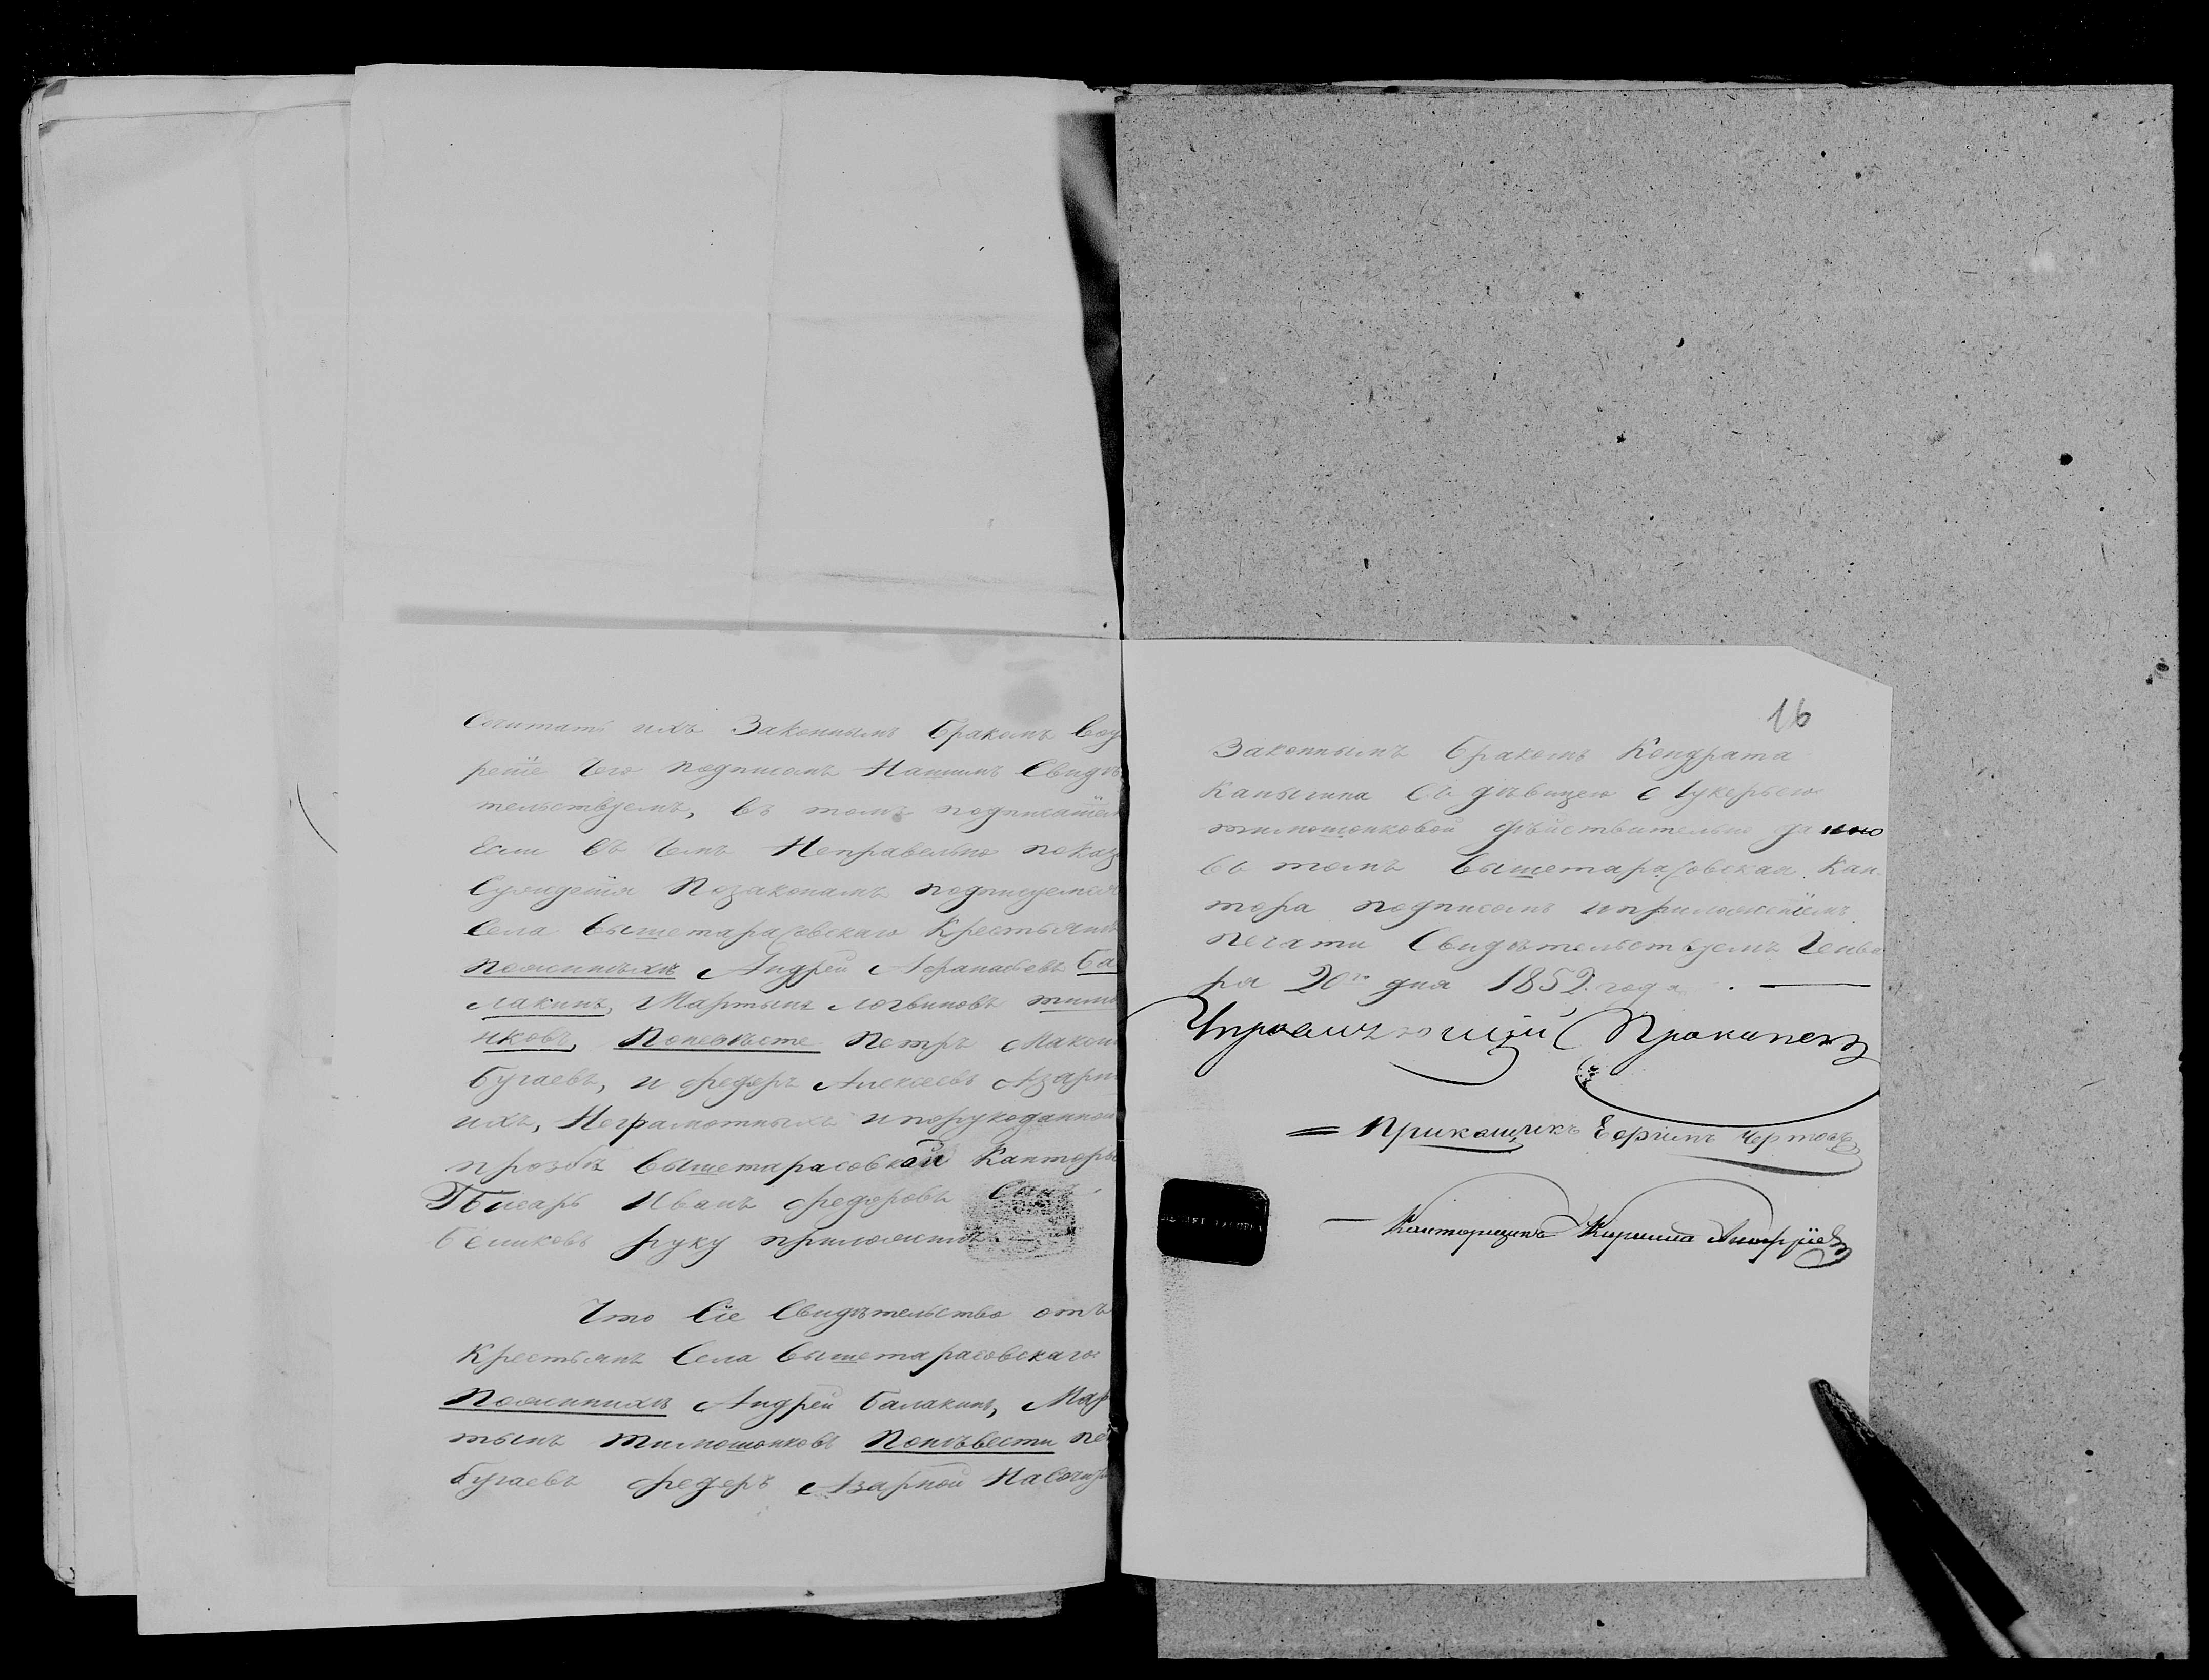 Сочитать ихъ Законнымъ бракомъ Воу
реніе Чего подписомъ Нашимъ Свидѣ
тельствуемъ, въ томъ подписаніем
Если въ Чемъ Неправельно показ
Сужденія Позаконамъ подписуемся
Села вышетарасовскаго Крестьянъ
Поженихѣ Андрей Афанасьевъ ба
лакинъ, Мартынъ логвиновъ тимо
нковъ, Поневѣсте Петръ Максим
бугаевъ, и федоръ Алексеевъ Азарн
ихъ, Неграмотныхъ ипорукоданной
прозбѣ вышетарасовской Канторы
Писарь Иванъ федоровъ Сынъ
бѣликовъ руку приложилъ
Что Сіе Свидѣтельство отъ
Крестьянъ Села вышетарасовскаго
Поженихѣ Андрей балакинъ, Мар
тынъ тимошонковъ Понѣвести пе
бугаевъ федоръ Азарной НаСочи
16
Законнымъ бракомъ Кондрата
Капыгина Съ дѣвицею Лукерьею
тимошонковой дѣйствительно дано
въ томъ вышетарасовская Кан
тора подписомъ иприложеніемъ
печати Свидѣтельствуемъ Генва
ря 20го дня 1852 года
Управляющій Прокипенъ
Прикащикъ Ефимъ Чертовъ
Канторщикъ Кирила Анофріевъ